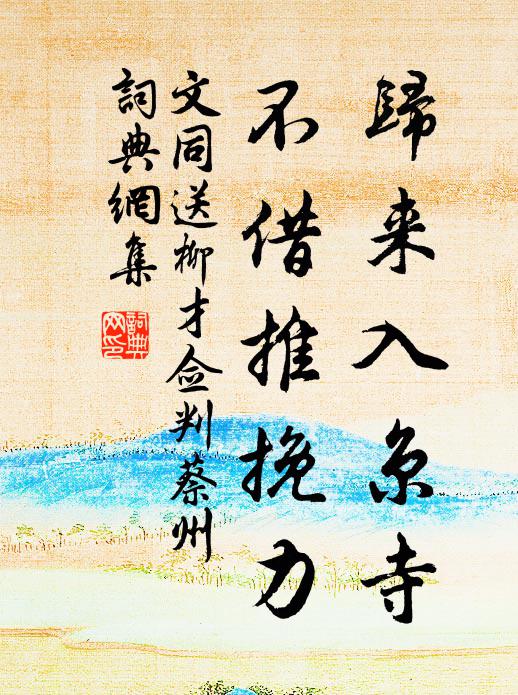 歸来入京寺
不借推挽力
文同送柳才佥判蔡州
詞典網集
詞典網印